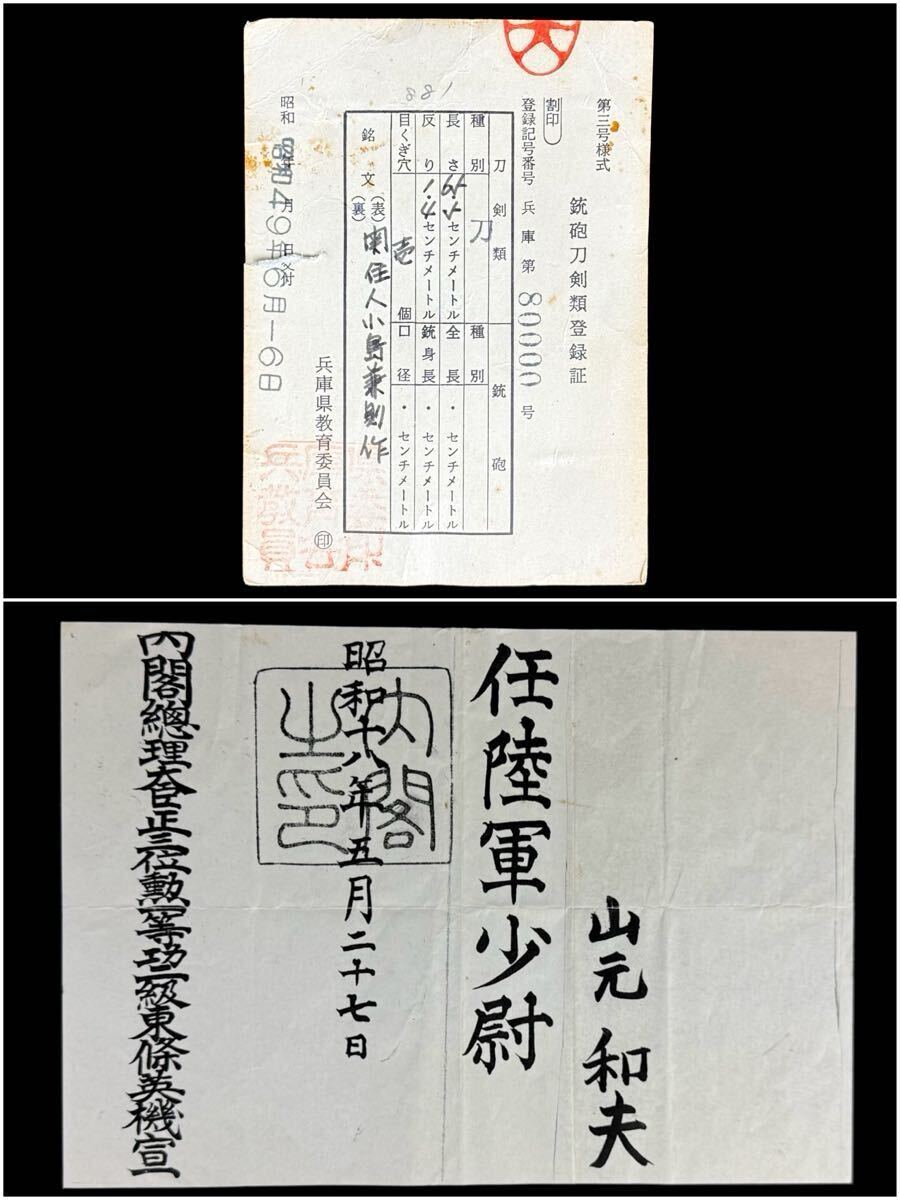 第三号様式
銃砲刀剣類登録証
割印
登録記号番号 兵庫 第 80000 号
刀剣類 銃砲
種別 刀 種別
長さ 65.5センチメートル 全長 ・センチメートル
反り 1.4センチメートル 銃身長 ・センチメートル
目くぎ穴 壱個 口径 ・センチメートル
銘文 (表) 関住人小島兼則作
(裏)
兵庫県教育委員会 ㊞
昭和 年 月 日交付
昭和49年6月-6日
山元和夫
任陸軍少尉
昭和十八年五月二十七日
内閣
之印
内閣總理大臣正三位勲一等功二級東條英機宣